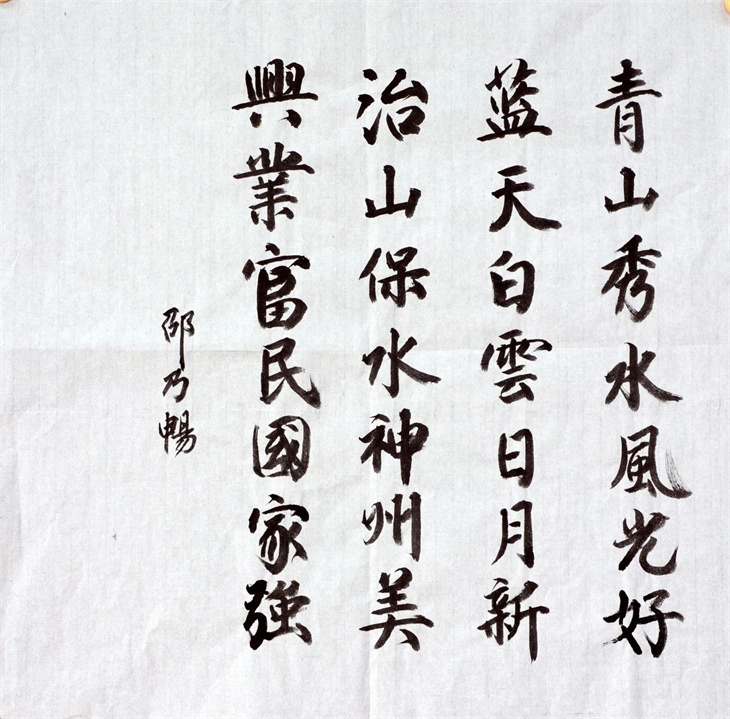 青山秀水風光好
蓝天白雲日月新
治山保水神州美
興業富民國家強
邵乃暢